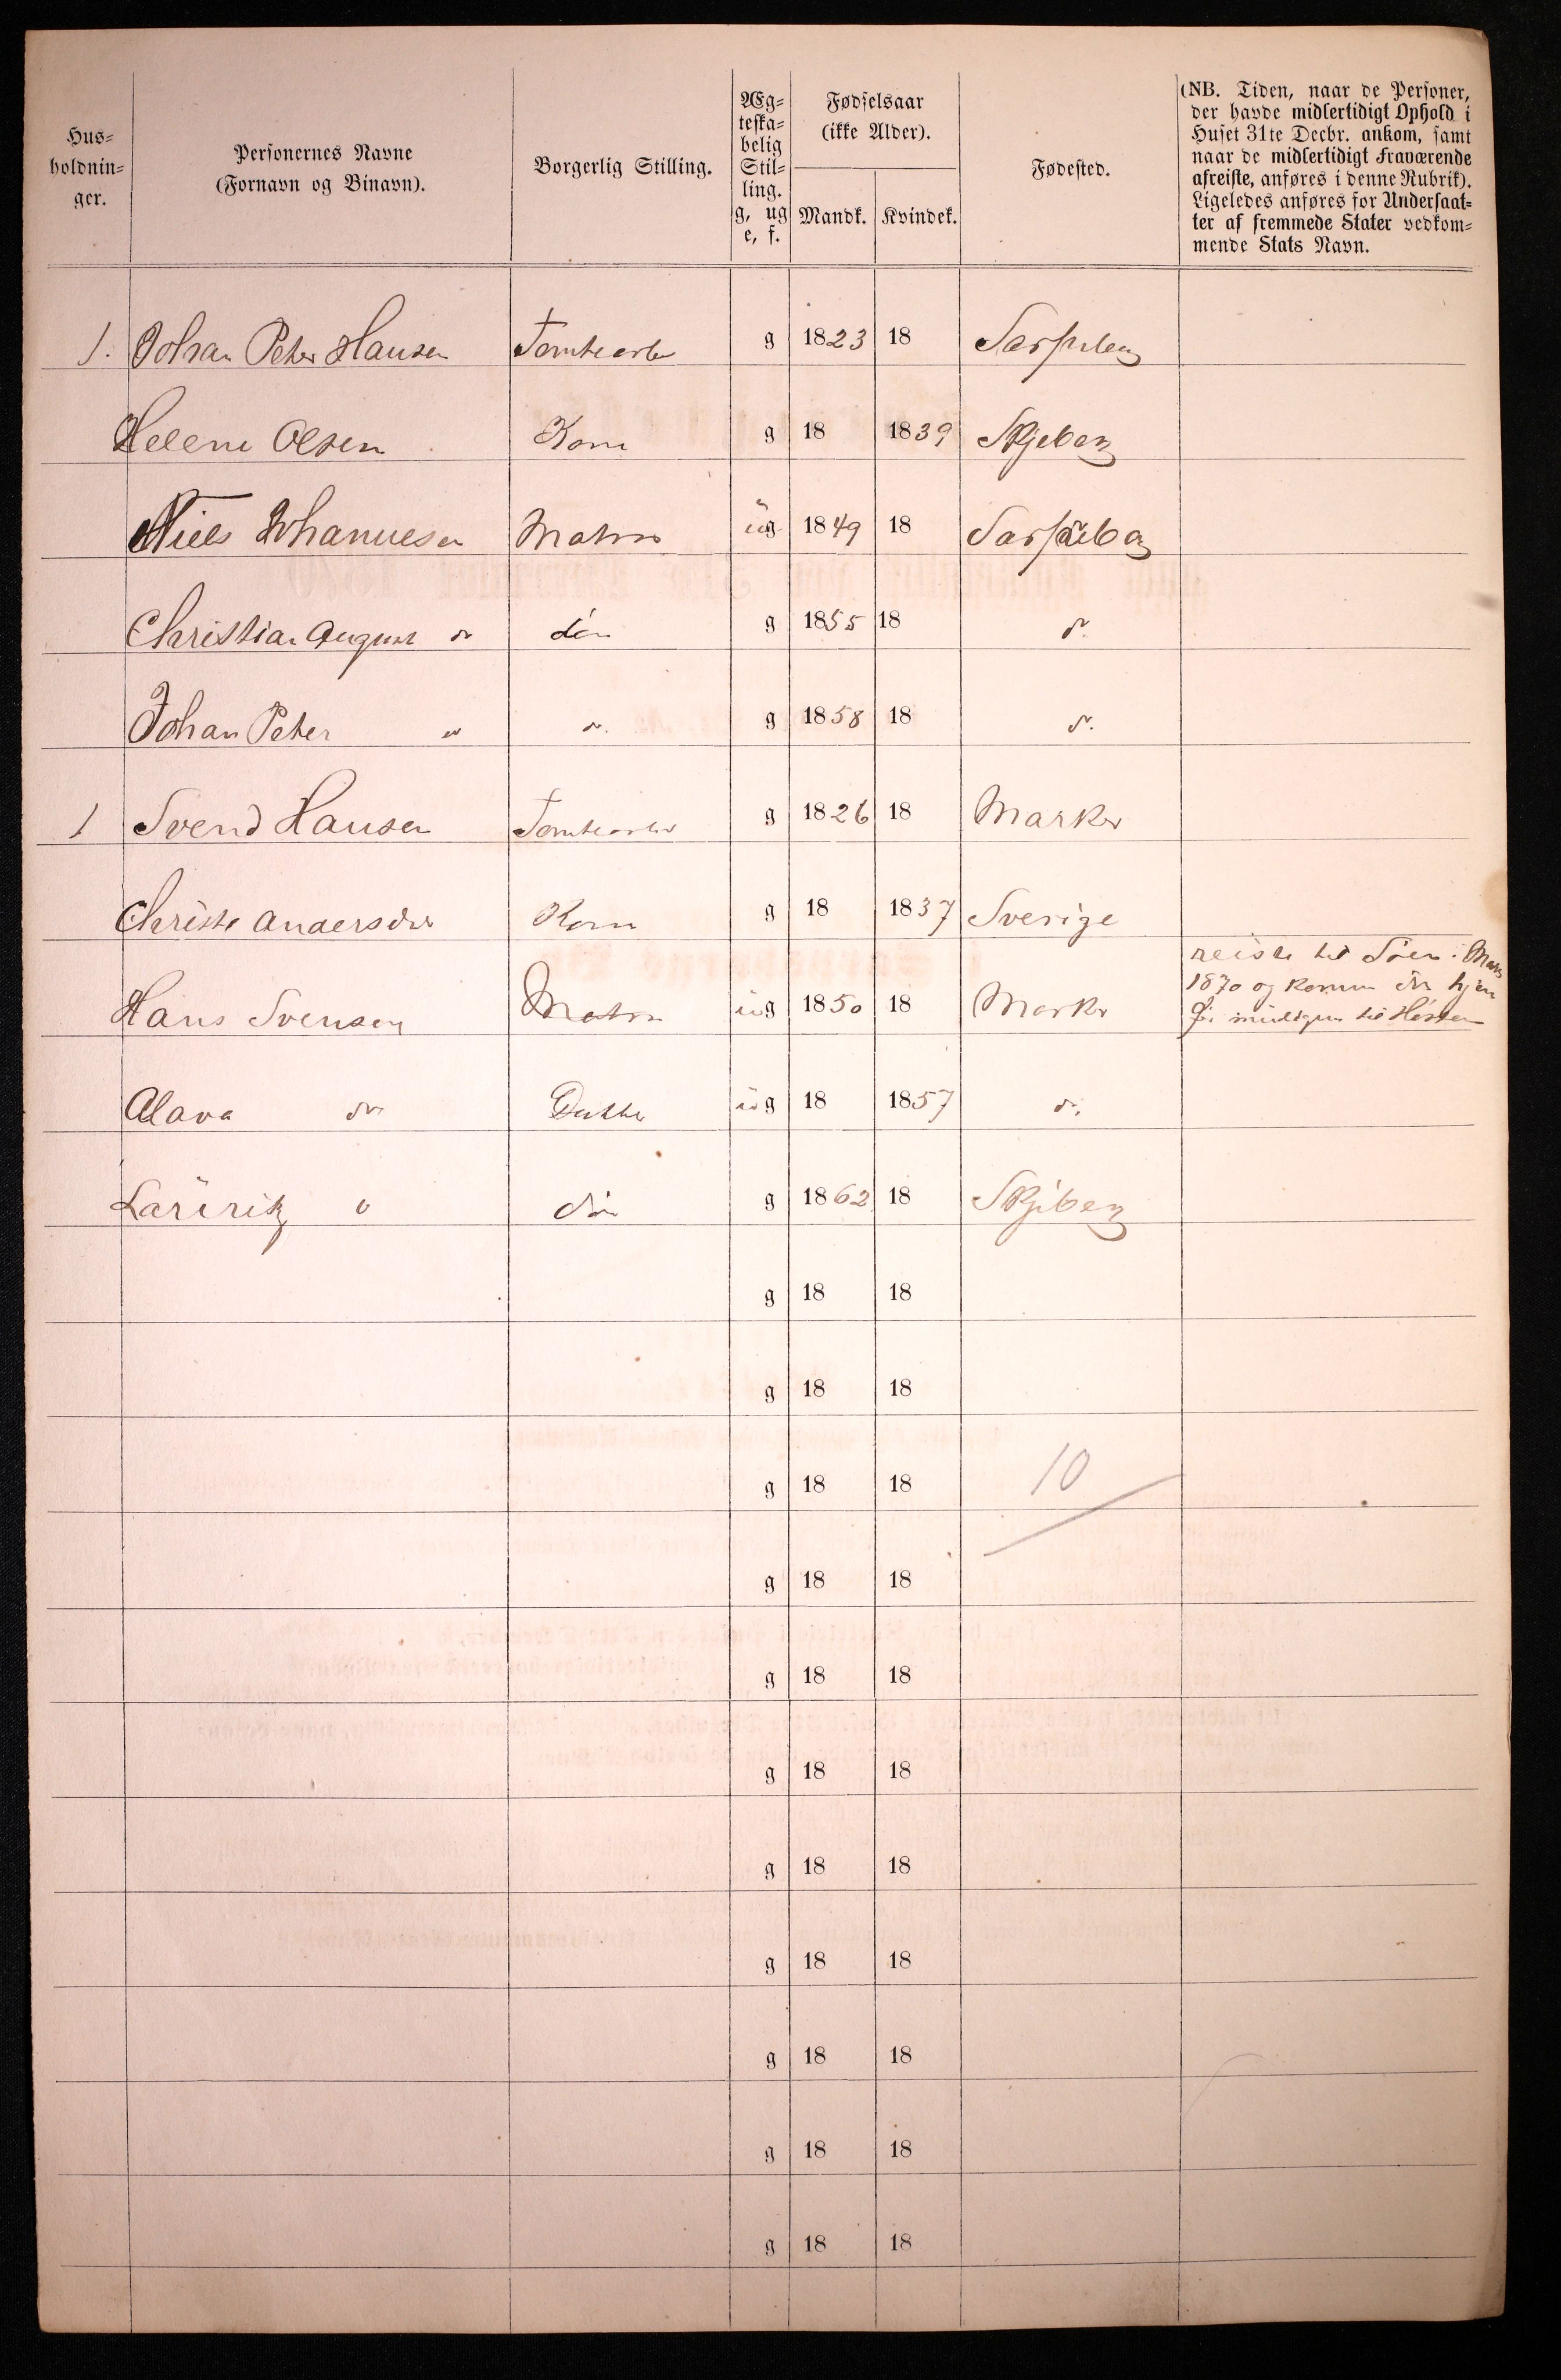 Hus-
holdnin-
ger.
Personernes Navne
(Fornavn og Binavn).
Borgerlig Stilling.
Æg-
teska-
belig
Stil-
ling.
g, ug
e, f.
Fødselsaar
(ikke Alder).
Mandk. Kvindek.
Fødested.
(NB. Tiden, naar de Personer,
der havde midlertidigt Ophold i
Huset 31te Decbr. ankom, samt
naar de midlertidigt Fraværende
afreiste, anføres i denne Rubrik).
Ligeledes anføres for Undersaat-
ter af fremmede Stater vedkom-
mende Stats Navn.
1. Johan Peter Hansen Tomtearb g 1823 18 Sarpsborg
Helene Olsen Kone g 18 1839 Skjeberg
Niels Johannesen Matros ug 1849 18 Sarpsborg
Christian August do Søn g 1855 18 do.
Johan Peter " do. g 1858 18 do.
1 Svend Hansen Tomtearb g 1826 18 Marker
Christi Andersdtr Kone g 18 1837 Sverige
Hans Svensen Matros ug 1850 18 Marker
reiste til Søen. Mars
1870 og kommer hjem
til Høsten
Olava do Datter ug 18 1857 do.
Lauritz do Søn g 1862 18 Skjeberg
g 18 18
g 18 18
g 18 18 10
g 18 18
g 18 18
g 18 18
g 18 18
g 18 18
g 18 18
g 18 18
g 18 18